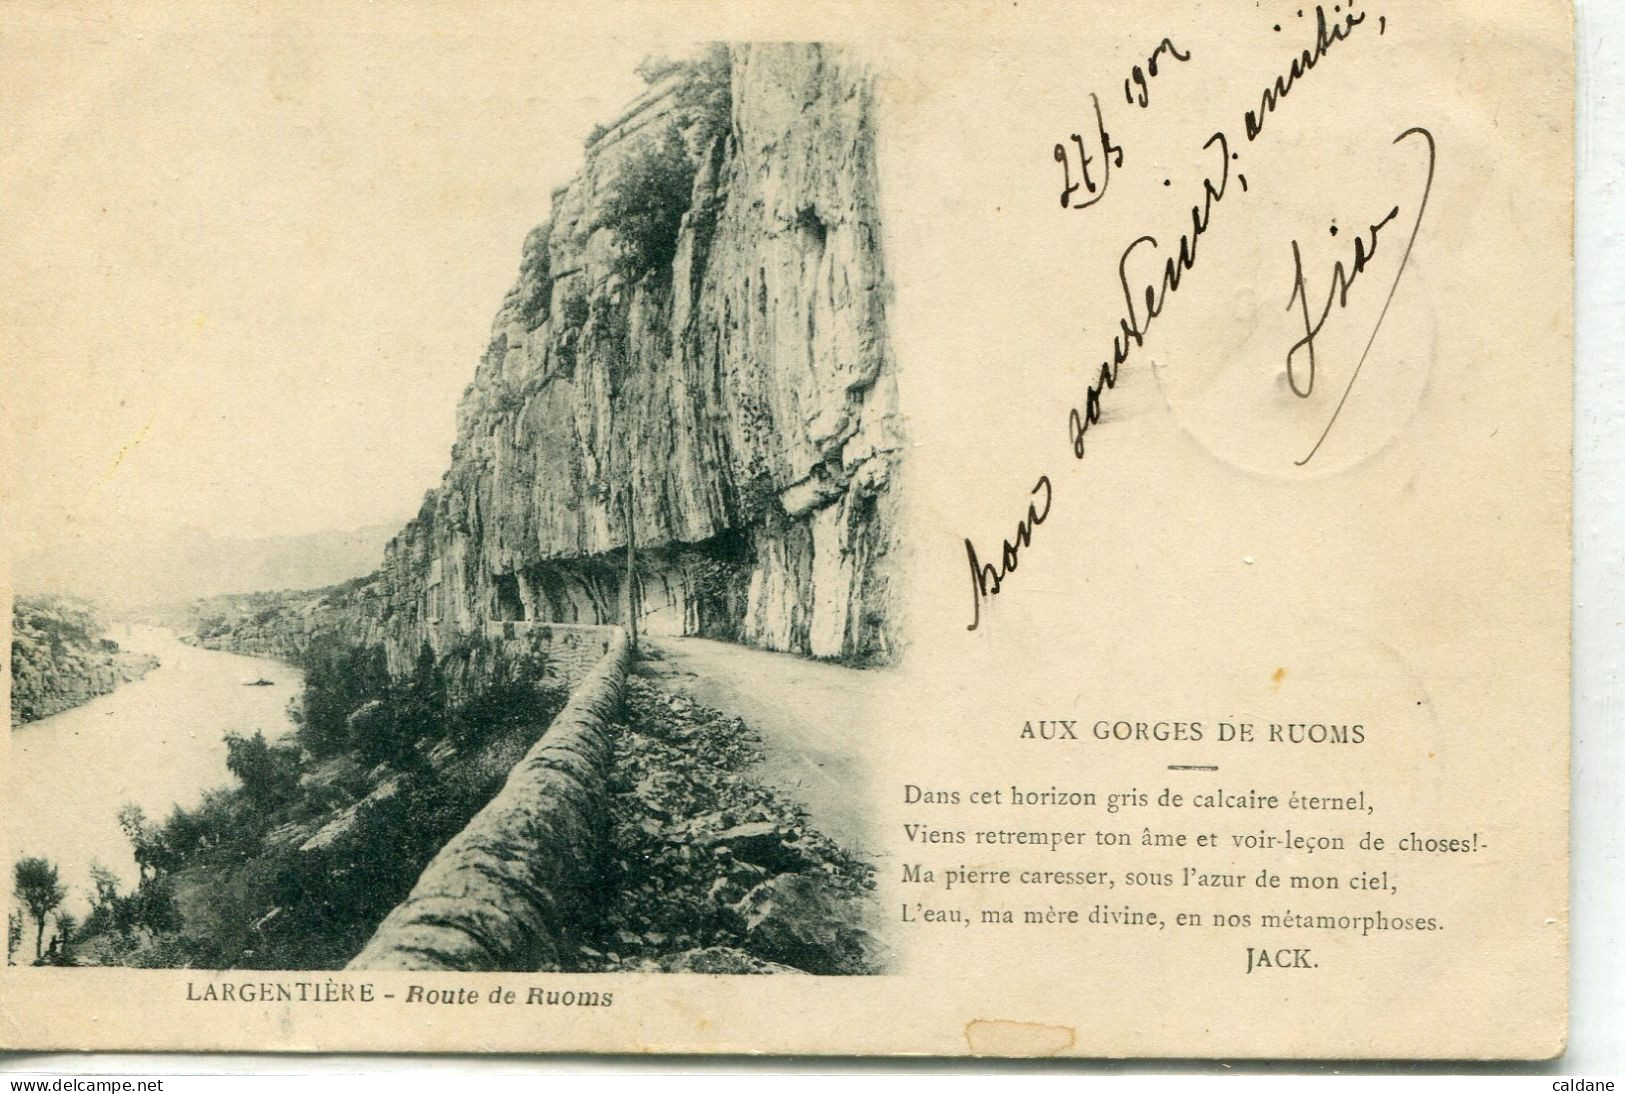 27/5 1902
bon souvenir, amitié,
Lisa
AUX GORGES DE RUOMS
Dans cet horizon gris de calcaire éternel,
Viens retremper ton âme et voir-leçon de choses!-
Ma pierre caresser, sous l'azur de mon ciel,
L'eau, ma mère divine, en nos métamorphoses.
JACK.
LARGENTIÈRE - Route de Ruoms
Website : http://caldane.delcampe.net
caldane